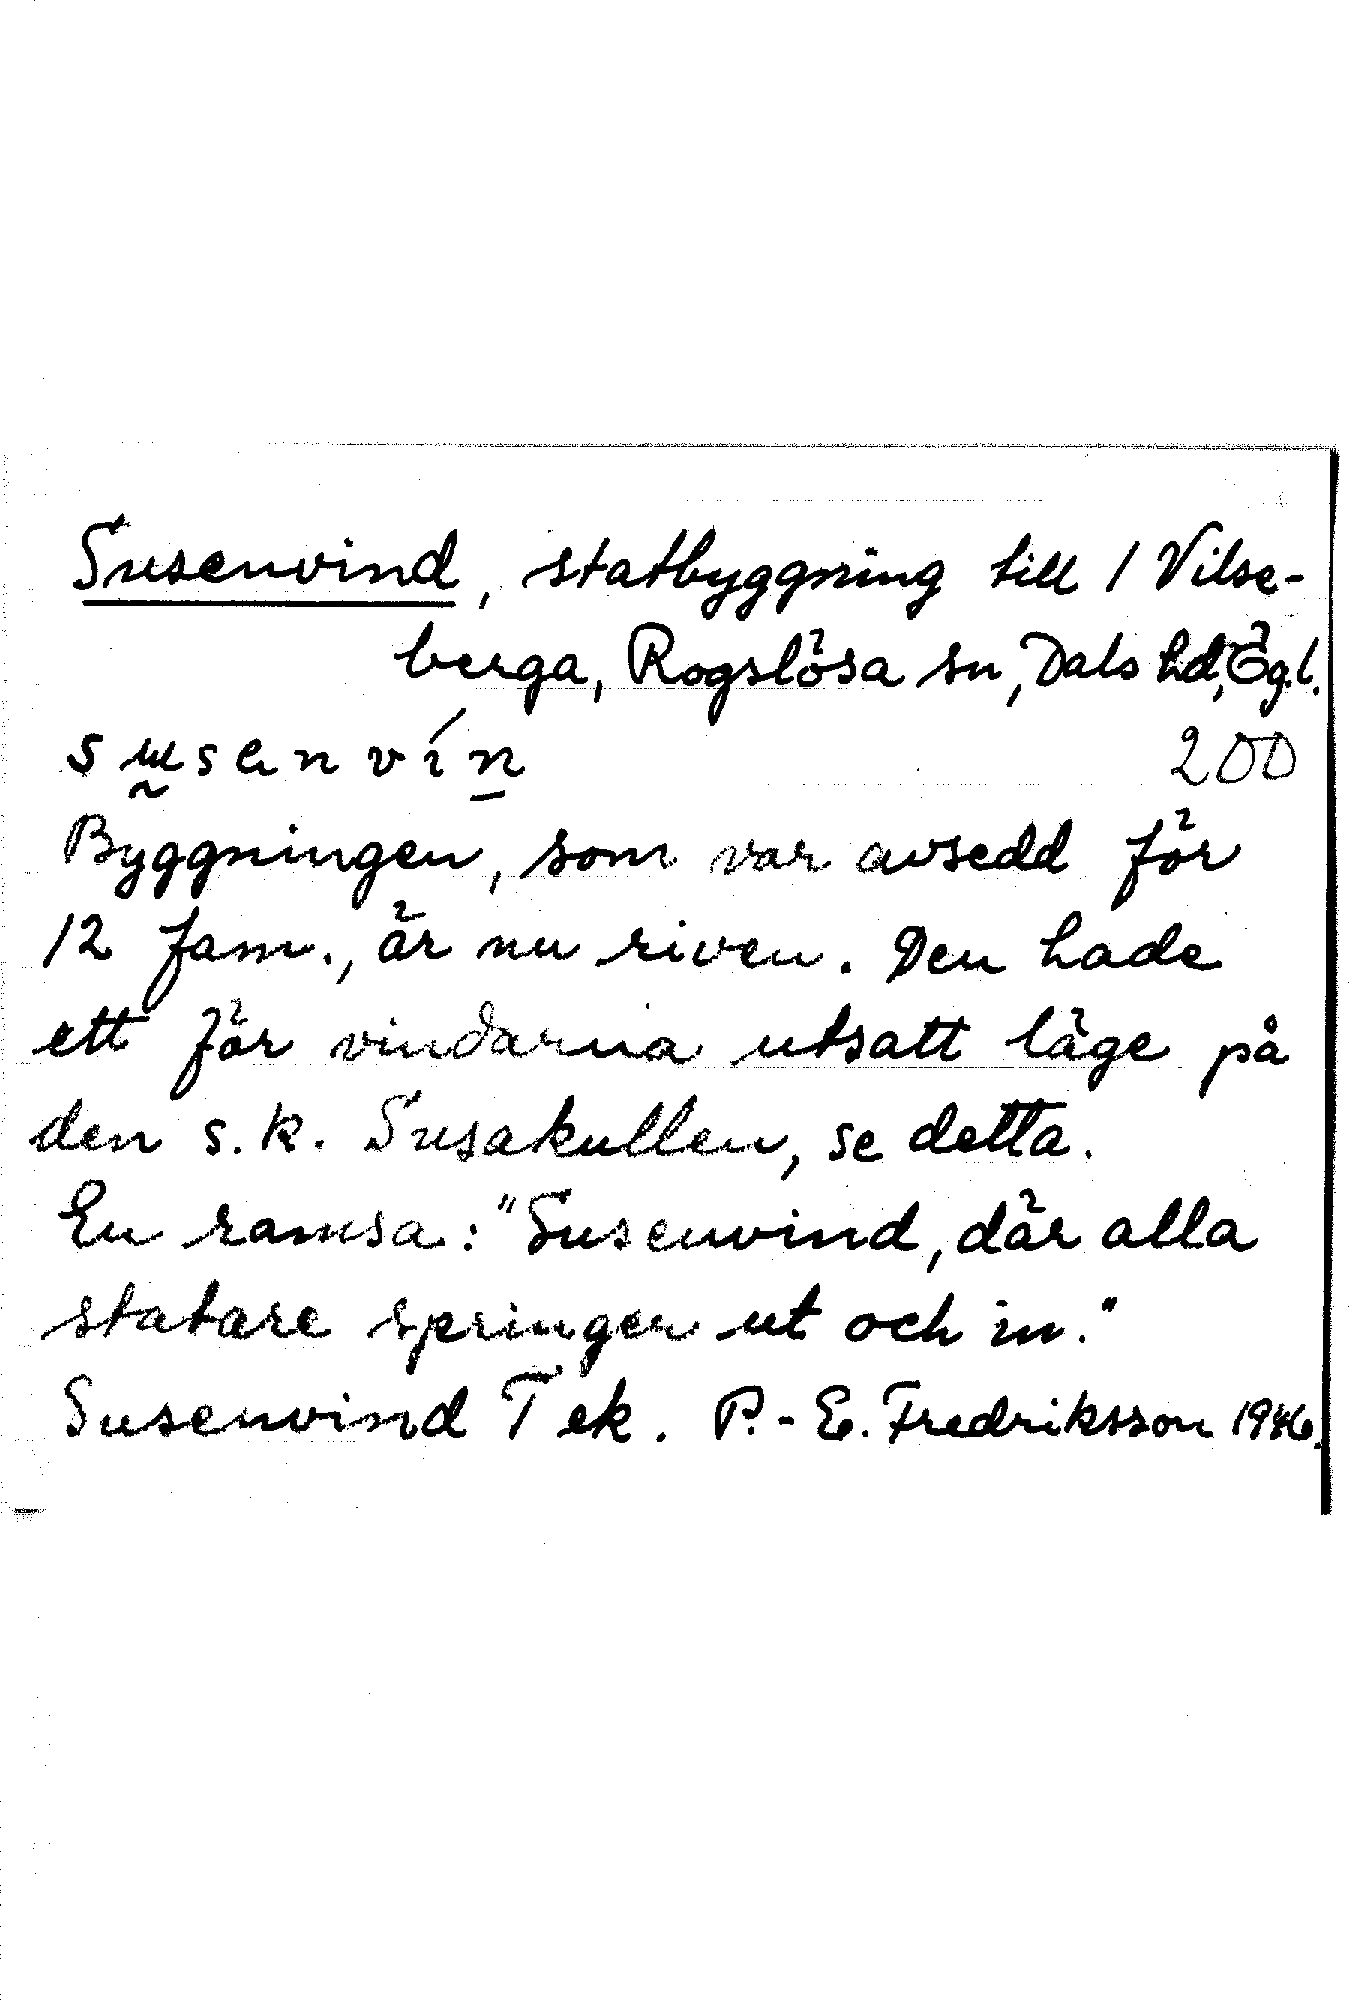 Susenvind, statbyggning till 1 Vilse-
berga, Rogslösa sn, Dals hd, Ög.l.
susenvín 200
Byggningen, som var avsedd för
12 fam., är nu riven. Den hade
ett för vindarna utsatt läge på
den s.k. Susakullen, se detta.
En ramsa: "Susenvind, där alla
statare springer ut och in."
Susenvind T ek. P.-E. Fredriksson 1946.